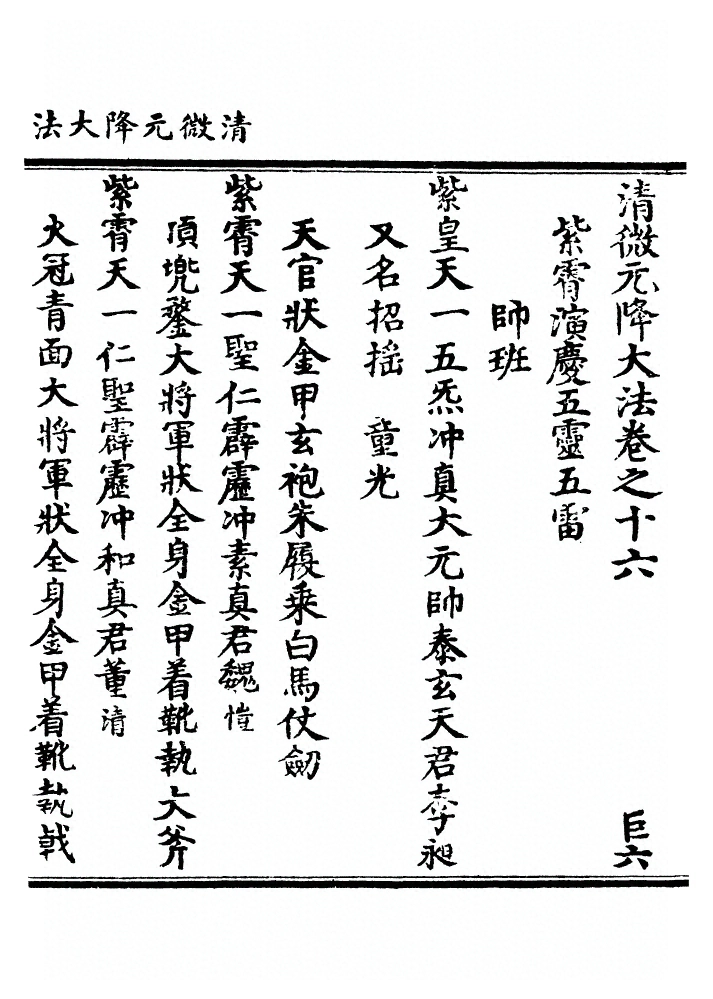 清微元降大法
清微元降大法卷之十六 巨六
紫霄演慶五靈五雷
帥班
紫皇天一五炁冲真大元帥泰玄天君李昶
又名招摇 童光
天官狀金甲玄袍朱履乘白馬仗劒
紫霄天一聖仁霹靂冲素真君魏愷
頂兠鍪大將軍狀全身金甲着靴執大斧
紫霄天一仁聖霹靂冲和真君董清
火冠青面大將軍狀全身金甲着靴執戟